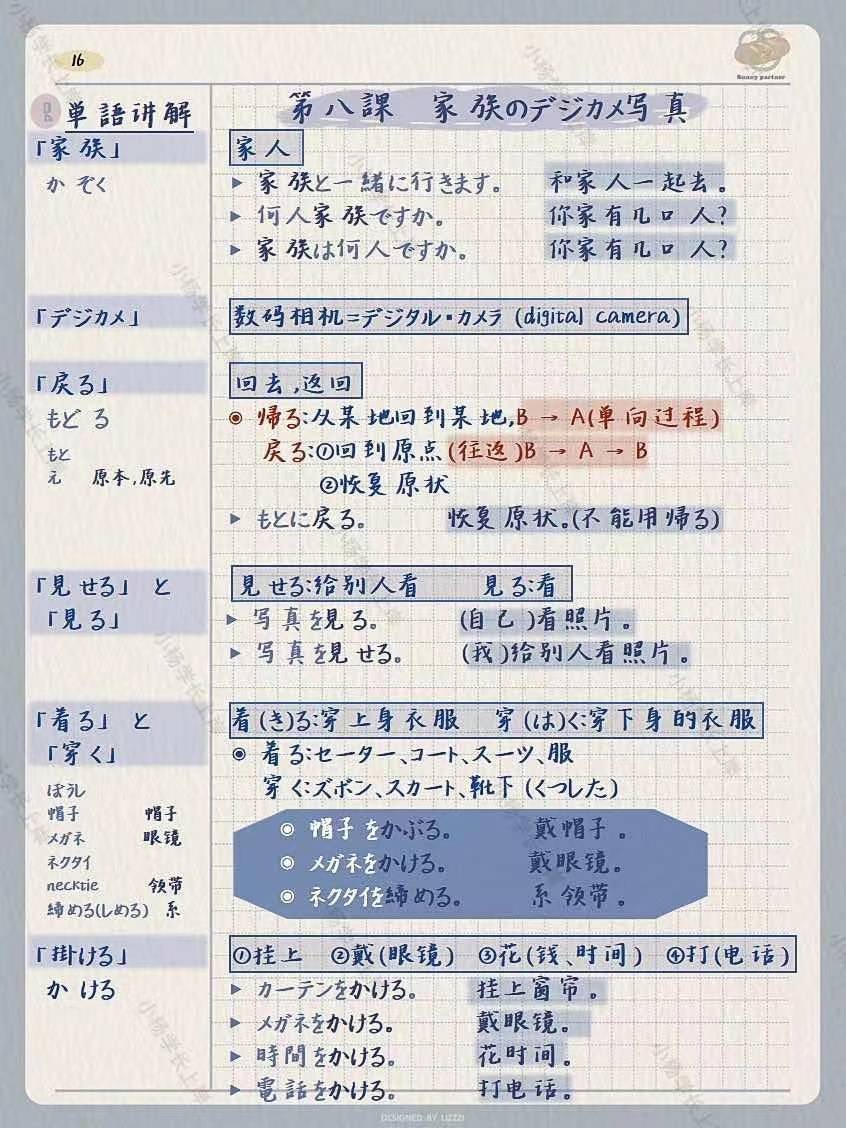 16
Sunny partner
単語讲解
第八課 家族のデジカメ写真
「家族」 家人
かぞく ▶ 家族と一緒に行きます。 和家人一起去。
▶ 何人家族ですか。 你家有几口人?
▶ 家族は何人ですか。 你家有几口人?
「デジカメ」 数码相机=デジタル・カメラ (digital camera)
「戻る」 回去,返回
もどる ◉ 帰る:从某地回到某地,B → A(单向过程)
戻る:①回到原点(往返)B → A → B
もと
元 原本,原先 ②恢复原状
▶ もとに戻る。 恢复原状。(不能用帰る)
「見せる」 と 見せる:给别人看 見る:看
「見る」 ▶ 写真を見る。 (自己)看照片。
▶ 写真を見せる。 (我)给别人看照片。
「着る」 と 着(き)る:穿上身衣服 穿(は)く:穿下身的衣服
「穿く」 ◉ 着る:セーター、コート、スーツ、服
穿く:ズボン、スカート、靴下(くつした)
ぼうし
帽子 帽子 ◉ 帽子をかぶる。 戴帽子。
メガネ 眼镜 ◉ メガネをかける。 戴眼镜。
ネクタイ
necktie 领带 ◉ ネクタイを締める。 系领带。
締める(しめる) 系
「掛ける」 ①挂上 ②戴(眼镜) ③花(钱、时间) ④打(电话)
かける ▶ カーテンをかける。 挂上窗帘。
▶ メガネをかける。 戴眼镜。
▶ 時間をかける。 花时间。
▶ 電話をかける。 打电话。
DESIGNED BY LIZZI
小杨学长上岸